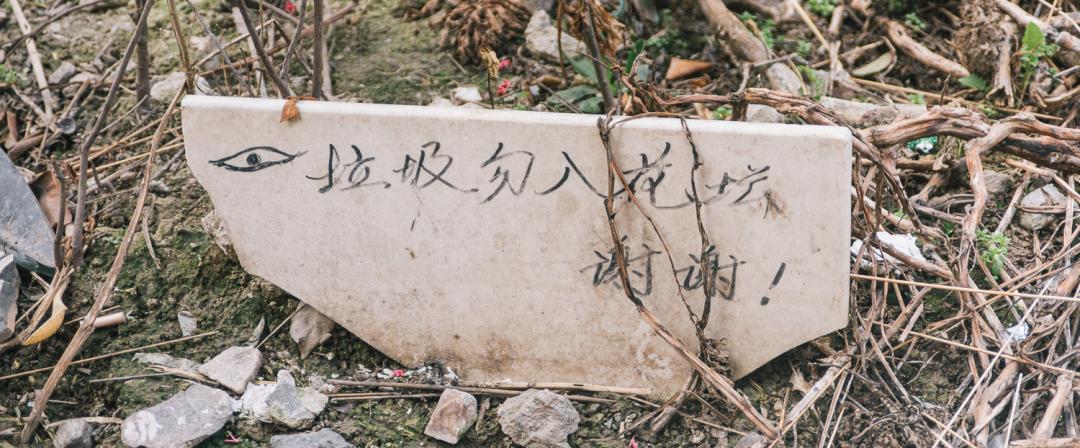 垃圾勿入花坛
谢谢！